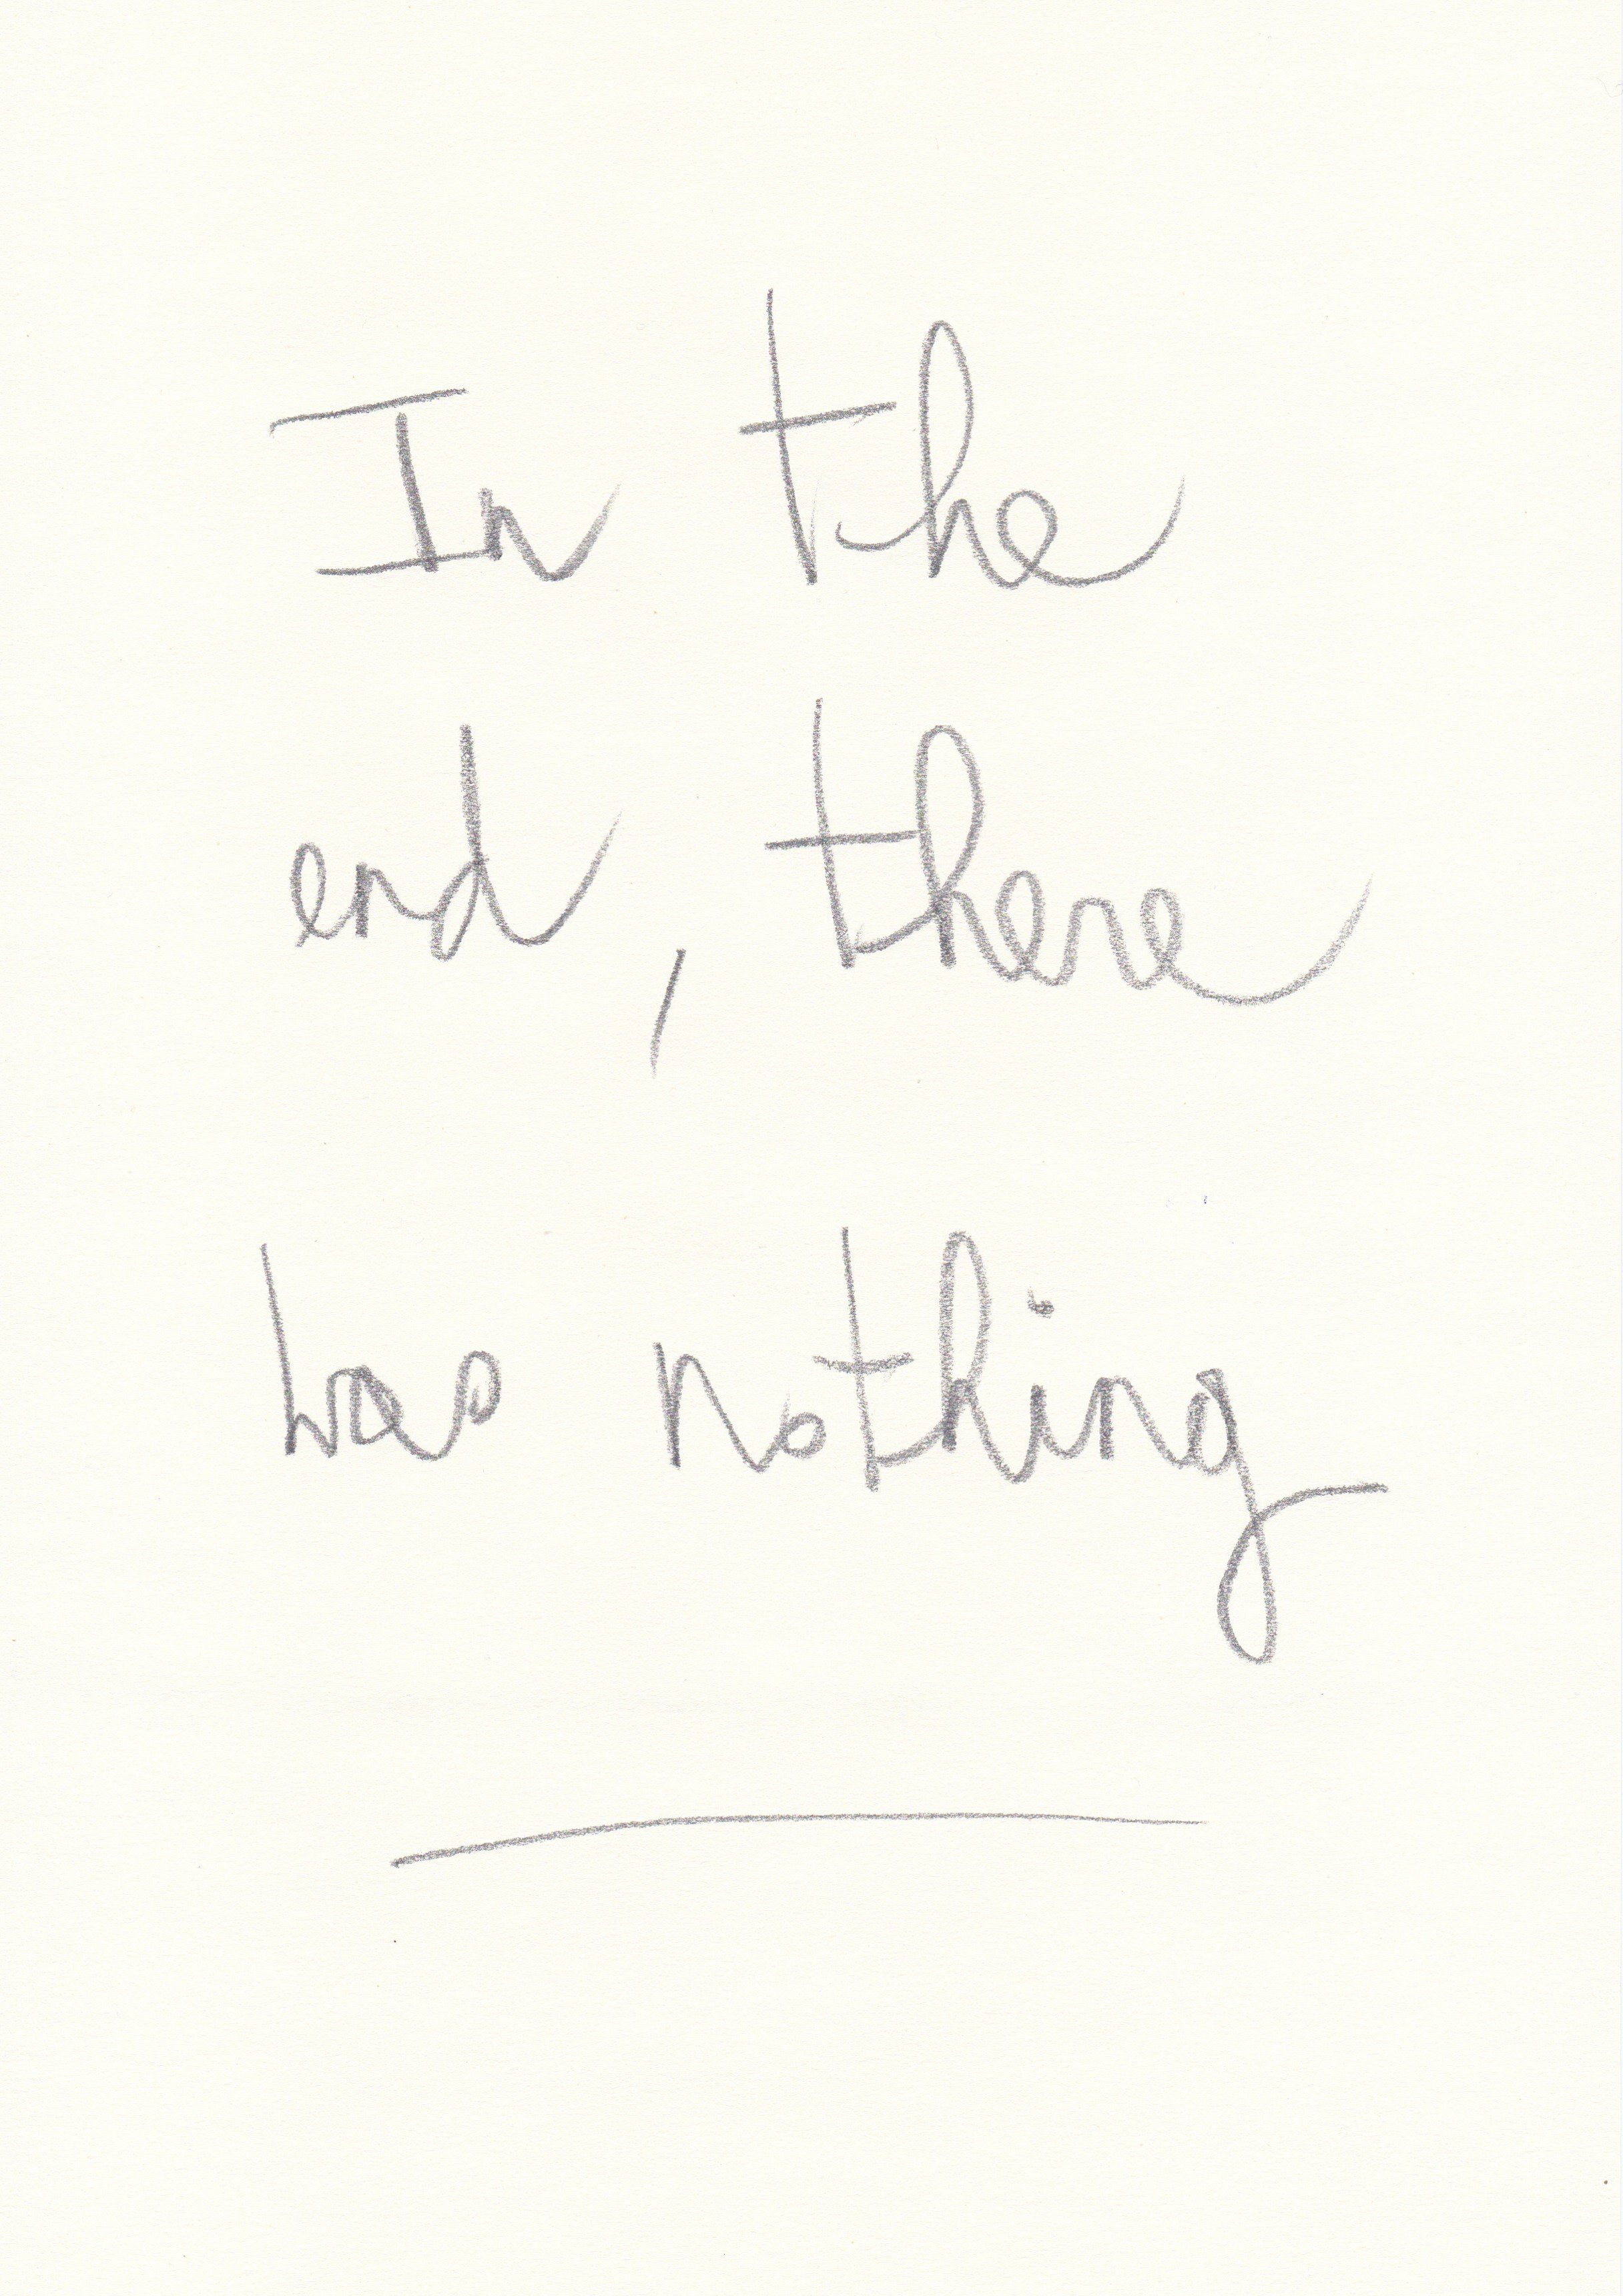 In the
end, there
was nothing